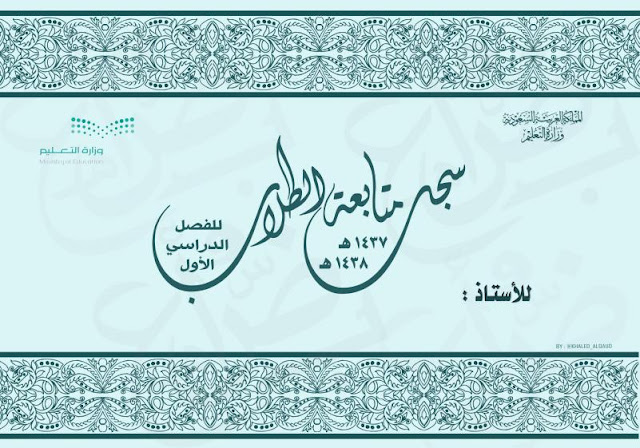 المملكة العربية السعودية
وزارة التعليم
وزارة التعليم
Ministry of Education
سجل متابعة الطلاب
١٤٣٧ هـ
١٤٣٨ هـ
للفصل
الدراسي
الأول
للأستاذ :